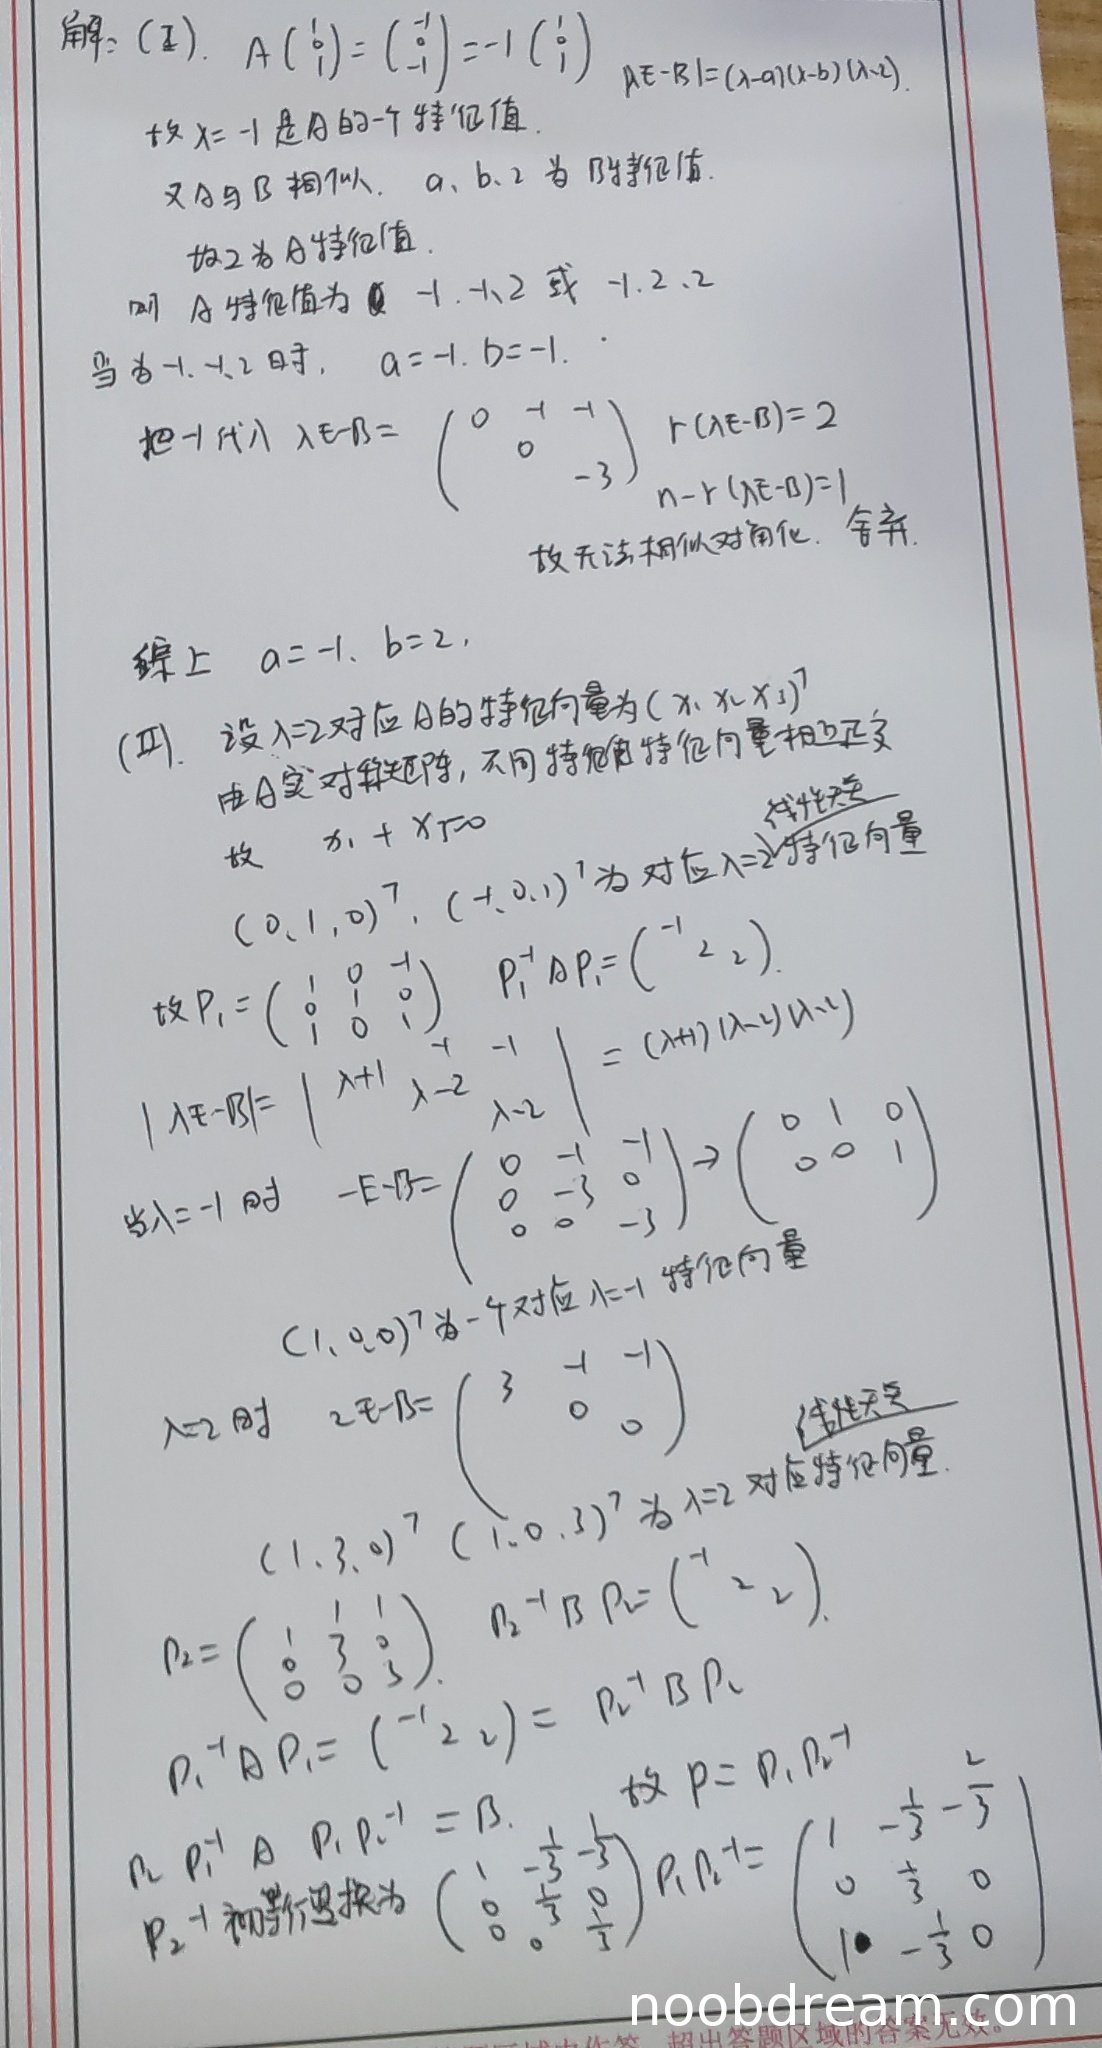 解:(I). A(1 0 1) = (-1 0 -1) = -1(1 0 1)
|λE-B|=(λ-a)(λ-b)(λ-2).
故λ=-1是A的一个特征值.
又A与B相似. a、b、2为B特征值.
故2为A特征值.
则 A特征值为 -1.-1、2 或 -1.2、2
当为-1.-1.2时, a=-1. b=-1.
把-1代入 λE-B= (0 -1 -1 0 -3) r(λE-B)=2
n-r(λE-B)=1
故无法相似对角化. 舍弃.
综上 a=-1、b=2.
(II). 设λ=2对应A的特征向量为(x₁ x₂ x₃)ᵀ
由A实对称矩阵,不同特征值特征向量相互正交
故 x₁ + x₃=0
线性无关
(0、1,0)ᵀ, (-1、0、1)ᵀ为对应λ=2特征向量
故P₁= (1 0 -1 0 1 0 1 0 1) P₁⁻¹AP₁=(-1 2 2).
|λE-B|= |λ+1 -1 -1 λ-2 λ-2| = (λ+1)(λ-2)(λ-2)
当λ=-1时 -E-B= (0 -1 -1 0 -3 0 0 0 -3) → (0 1 0 0 0 1)
(1、0、0)ᵀ为一个对应λ=-1特征向量
λ=2时 2E-B= (3 -1 -1 0 0)
线性无关
(1、3、0)ᵀ (1、0、3)ᵀ为λ=2对应特征向量.
P₂= (1 1 1 0 3 0 0 0 3). P₂⁻¹BP₂=(-1 2 2).
P₁⁻¹AP₁= (-1 2 2) = P₂⁻¹BP₂
P₂P₁⁻¹AP₁P₂⁻¹=B. 故P=P₁P₂⁻¹
P₂⁻¹初等行变换为 (1 -1/3 -1/3 0 1/3 0 0 0 1/3) P₁P₂⁻¹= (1 -1/3 -2/3 0 1/3 0 1 -1/3 0)
noobdream.com
超出答题区域的答案无效。